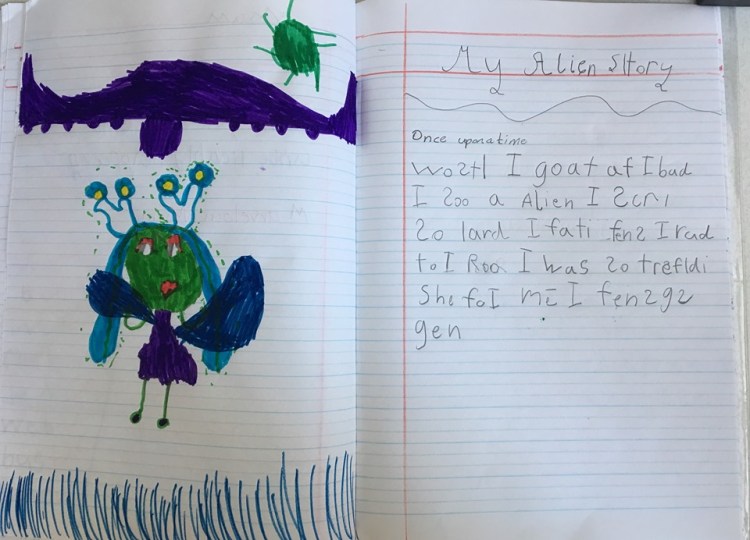 My Alien Story
Once upon a time
wostl I goat af I bad
I Zoo a Alien I Scri
So lard I fati fens I rad
to I Roo I was so trefldi
She fol mi I fensgs
gen